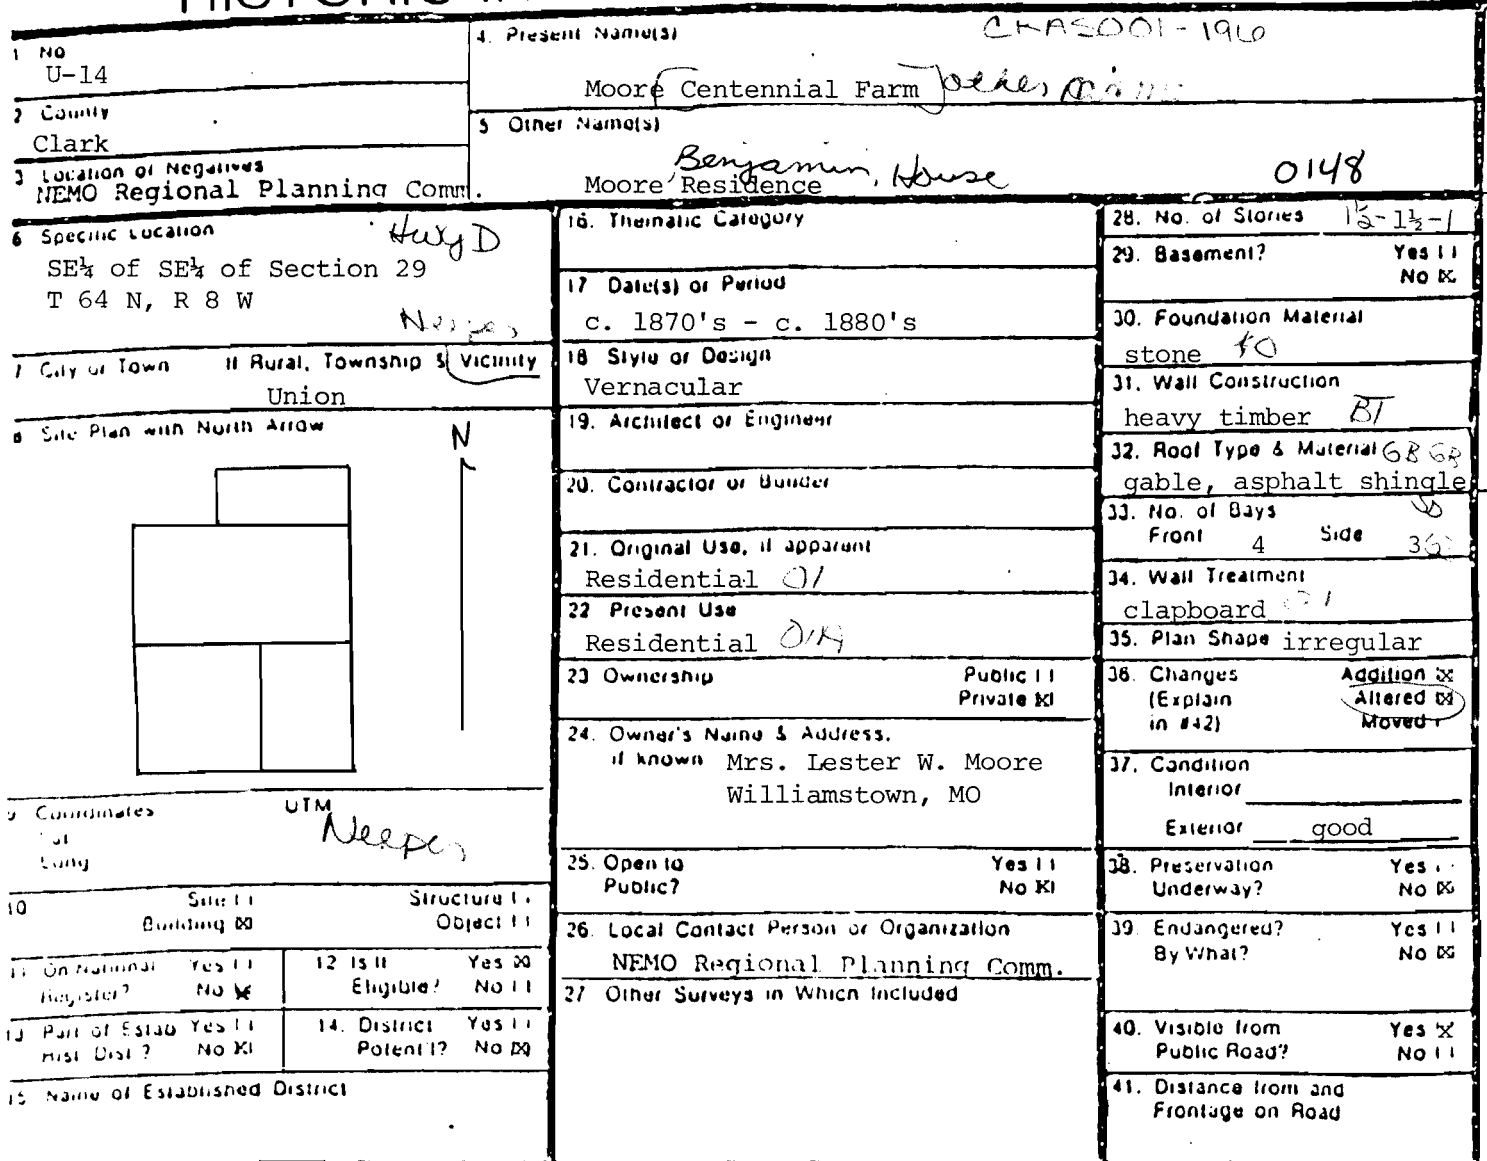 1 No
U-14
2 County
Clark
3 Location of Negatives
NEMO Regional Planning Comm.
4. Present Name(s)
CKAS001-196
Moore Centennial Farm other name
5 Other Name(s)
Benjamin, House
Moore Residence
0148
6 Specific Location
Hwy D
SE¼ of SE¼ of Section 29
T 64 N, R 8 W
Neeper
7 City or Town If Rural, Township & Vicinity
Union
8 Site Plan with North Arrow
N
9 Coordinates UTM
Lat
Long
Neeper
10 Site [ ] Structure [ ]
Building [X] Object [ ]
11 On National Register? Yes [ ] No [X]
12 Is It Eligible? Yes [X] No [ ]
13 Part of Estab Hist. Dist.? Yes [ ] No [X]
14. District Potent'l? Yes [ ] No [X]
15 Name of Established District
16. Thematic Category
17 Date(s) or Period
c. 1870's - c. 1880's
18 Style or Design
Vernacular
19. Architect or Engineer
20. Contractor or Builder
21. Original Use, if apparent
Residential 01
22 Present Use
Residential 01A
23 Ownership Public [ ]
Private [X]
24. Owner's Name & Address,
if known Mrs. Lester W. Moore
Williamstown, MO
25. Open to Yes [ ]
Public? No [X]
26. Local Contact Person or Organization
NEMO Regional Planning Comm.
27 Other Surveys in Which Included
28. No. of Stories 1½-1½-1
29. Basement? Yes [ ]
No [X]
30. Foundation Material
stone 40
31. Wall Construction
heavy timber BT
32. Roof Type & Material GB GB
gable, asphalt shingle
33. No. of Bays
Front 4 Side 3
34. Wall Treatment
clapboard 21
35. Plan Shape irregular
36. Changes Addition [X]
(Explain Altered [X]
in #42) Moved [ ]
37. Condition
Interior
Exterior good
38. Preservation Yes [ ]
Underway? No [X]
39. Endangered? Yes [ ]
By What? No [X]
40. Visible from Yes [X]
Public Road? No [ ]
41. Distance from and
Frontage on Road